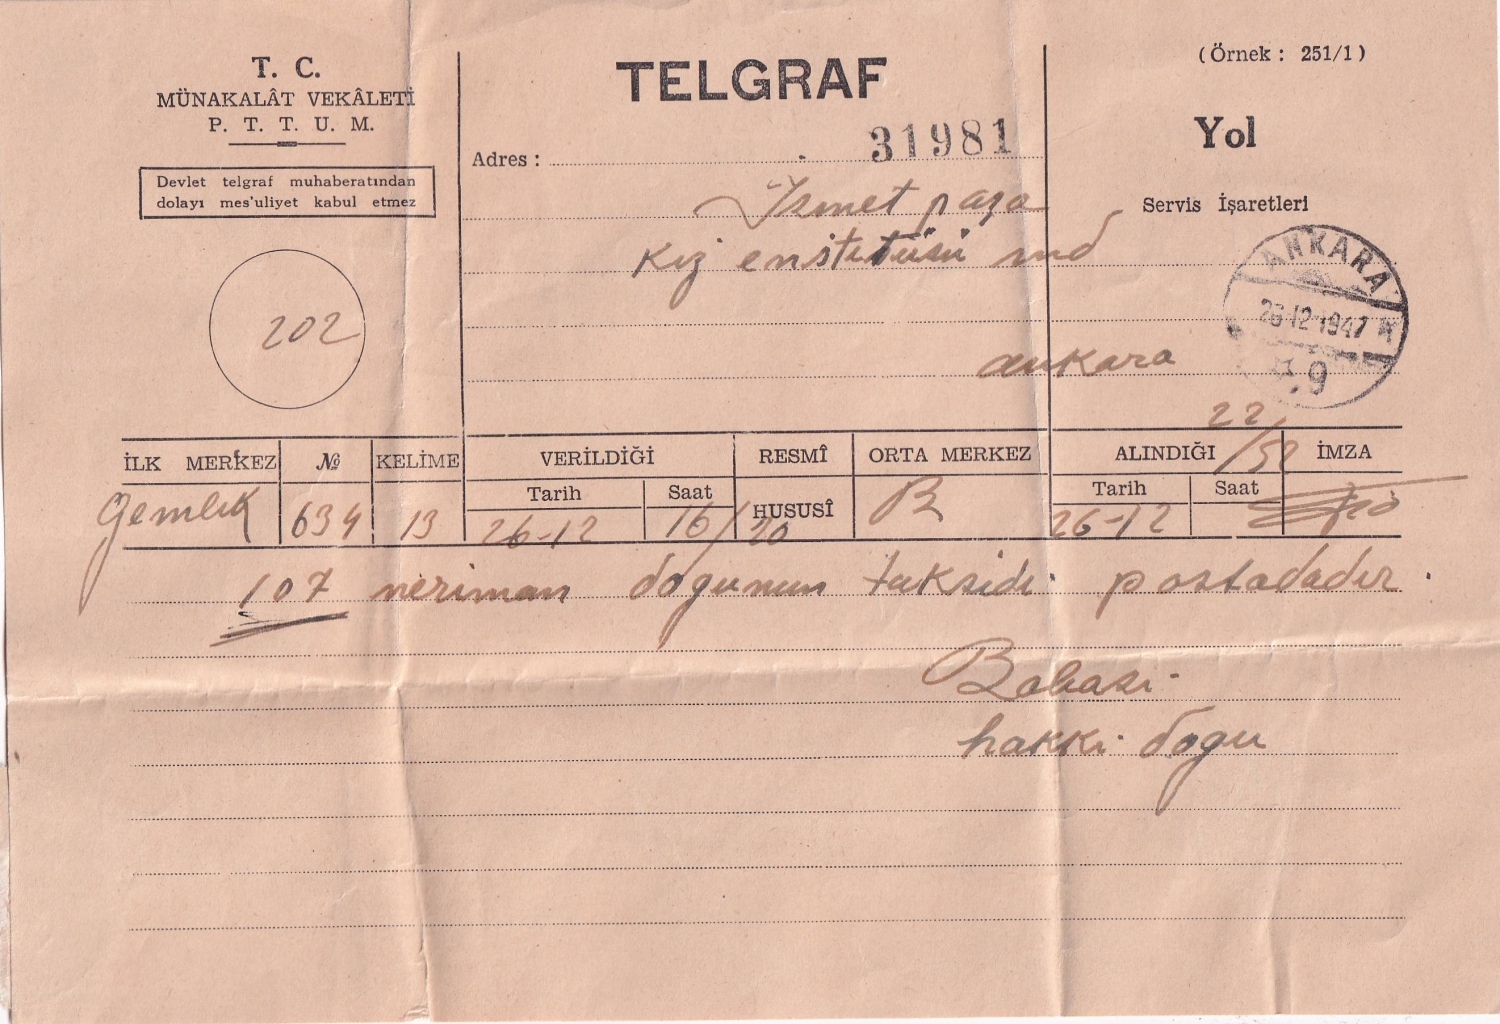 T. C.
MÜNAKALÂT VEKÂLETİ
P. T. T. U. M.
Devlet telgraf muhaberatından
dolayı mes'uliyet kabul etmez
202
TELGRAF
Adres :
31981
İsmet paşa
Kız enstitüsü md
ankara
(Örnek : 251/1)
Yol
Servis İşaretleri
ANKARA
26-12-1947
9
22/52
İLK MERKEZ № KELİME VERİLDİĞİ RESMÎ ORTA MERKEZ ALINDIĞI İMZA
Tarih Saat HUSUSÎ Tarih Saat
Gemlik 634 13 26-12 16/20 B 26-12
107 neriman dogunun taksidi postadadır.
Babası
hakkı dogu